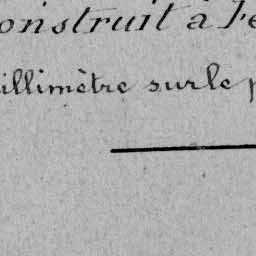 onstruit à l'é
illimètre sur le p